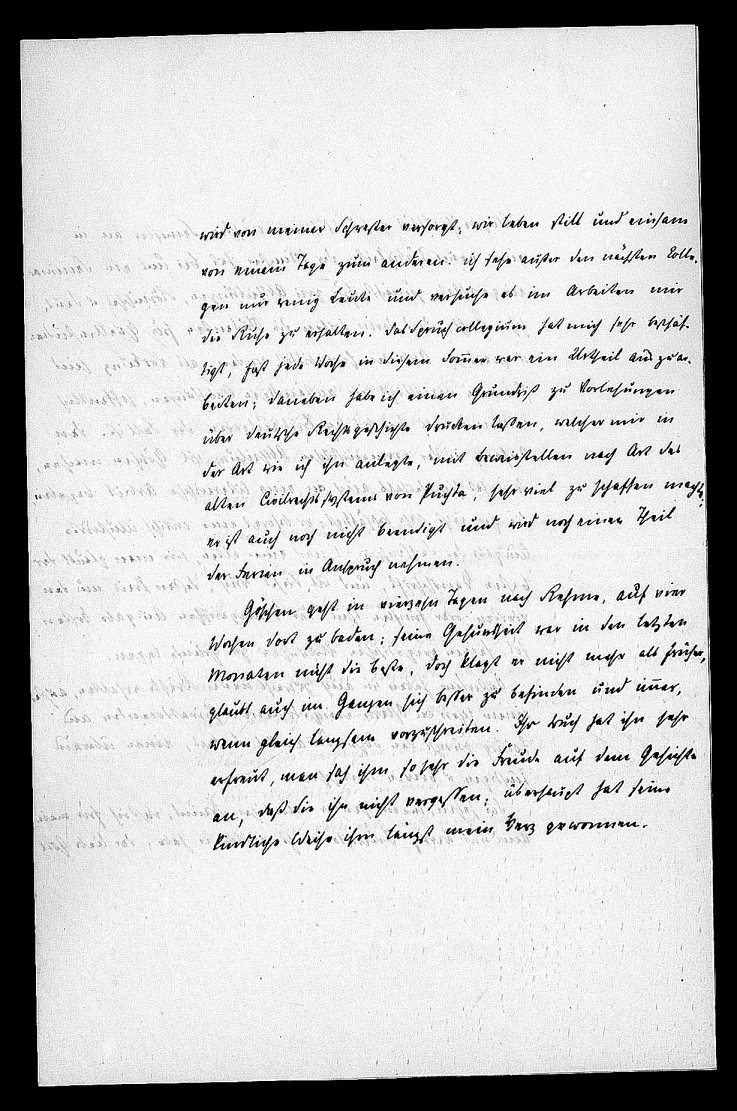 wird von meiner Schwester versorgt; wir leben still und einsam
von einem Tage zum anderen. ich sehe außer den nächsten Colle-
gen nur wenig Leute und versuche es im Arbeiten mir
die Ruhe zu erhalten. Das Spruchcollegium hat mich sehr beschäf-
tigt, fast jede Woche in diesem Som̄er war ein Urtheil auszuar-
beiten; daneben habe ich einen Grundriß zu Vorlesungen
über deutsche Rechtsgeschichte drucken lassen, welcher mir in
der Art wie ich ihn anlegte, mit Beweisstellen nach Art des
alten Civilrechtssystems von Puchta, sehr viel zu schaffen machte;
er ist auch noch nicht beendigt und wird noch einen Theil
der Ferien in Anspruch nehmen.
Göschen geht in vierzehn Tagen nach Rehme, auf vier
Wochen dort zu baden; seine Gesundheit war in den letzten
Monaten nicht die beste, doch klagt er nicht mehr als früher,
glaubt auch im Ganzen sich besser zu befinden und im̄er,
wenn gleich langsam vorzuschreiten. Ihr Buch hat ihn sehr
erfreut, man sah ihm so sehr die Freude auf dem Gesichte
an, daß Sie ihn nicht vergessen; überhaupt hat seine
kindliche Weise ihm längst mein Herz gewonnen.